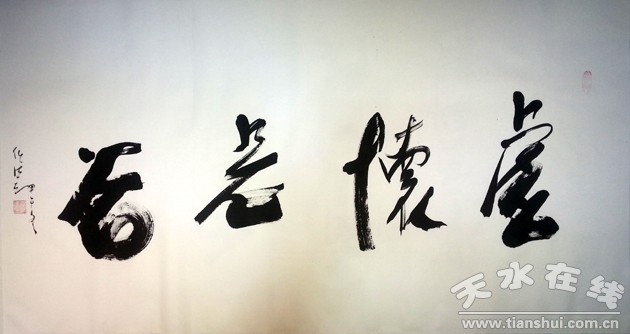 虛懷若谷
甲午
天水在线
www.tianshui.com.cn